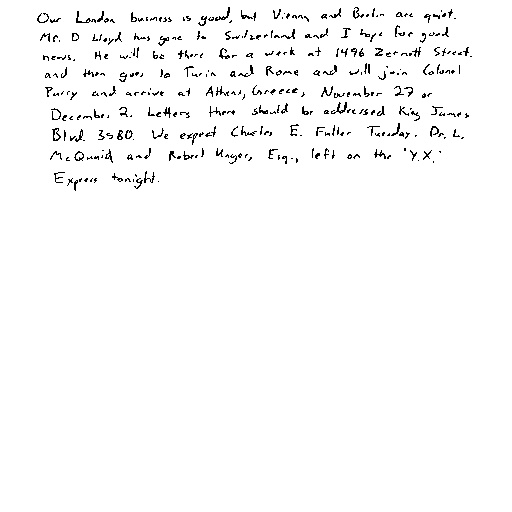 Our London business is good, but Vienna and Berlin are quiet.
Mr. D Lloyd has gone to Switzerland and I hope for good
news. He will be there for a week at 1496 Zermott Street.
and then goes to Turin and Rome and will join Colonel
Parry and arrive at Athens, Greece, November 27 or
December 2. Letters there should be addressed King James
Blvd. 3580. We expect Charles E. Fuller Tuesday. Dr. L.
McQuaid and Robert Unger, Esq., left on the "Y.X."
Express tonight.